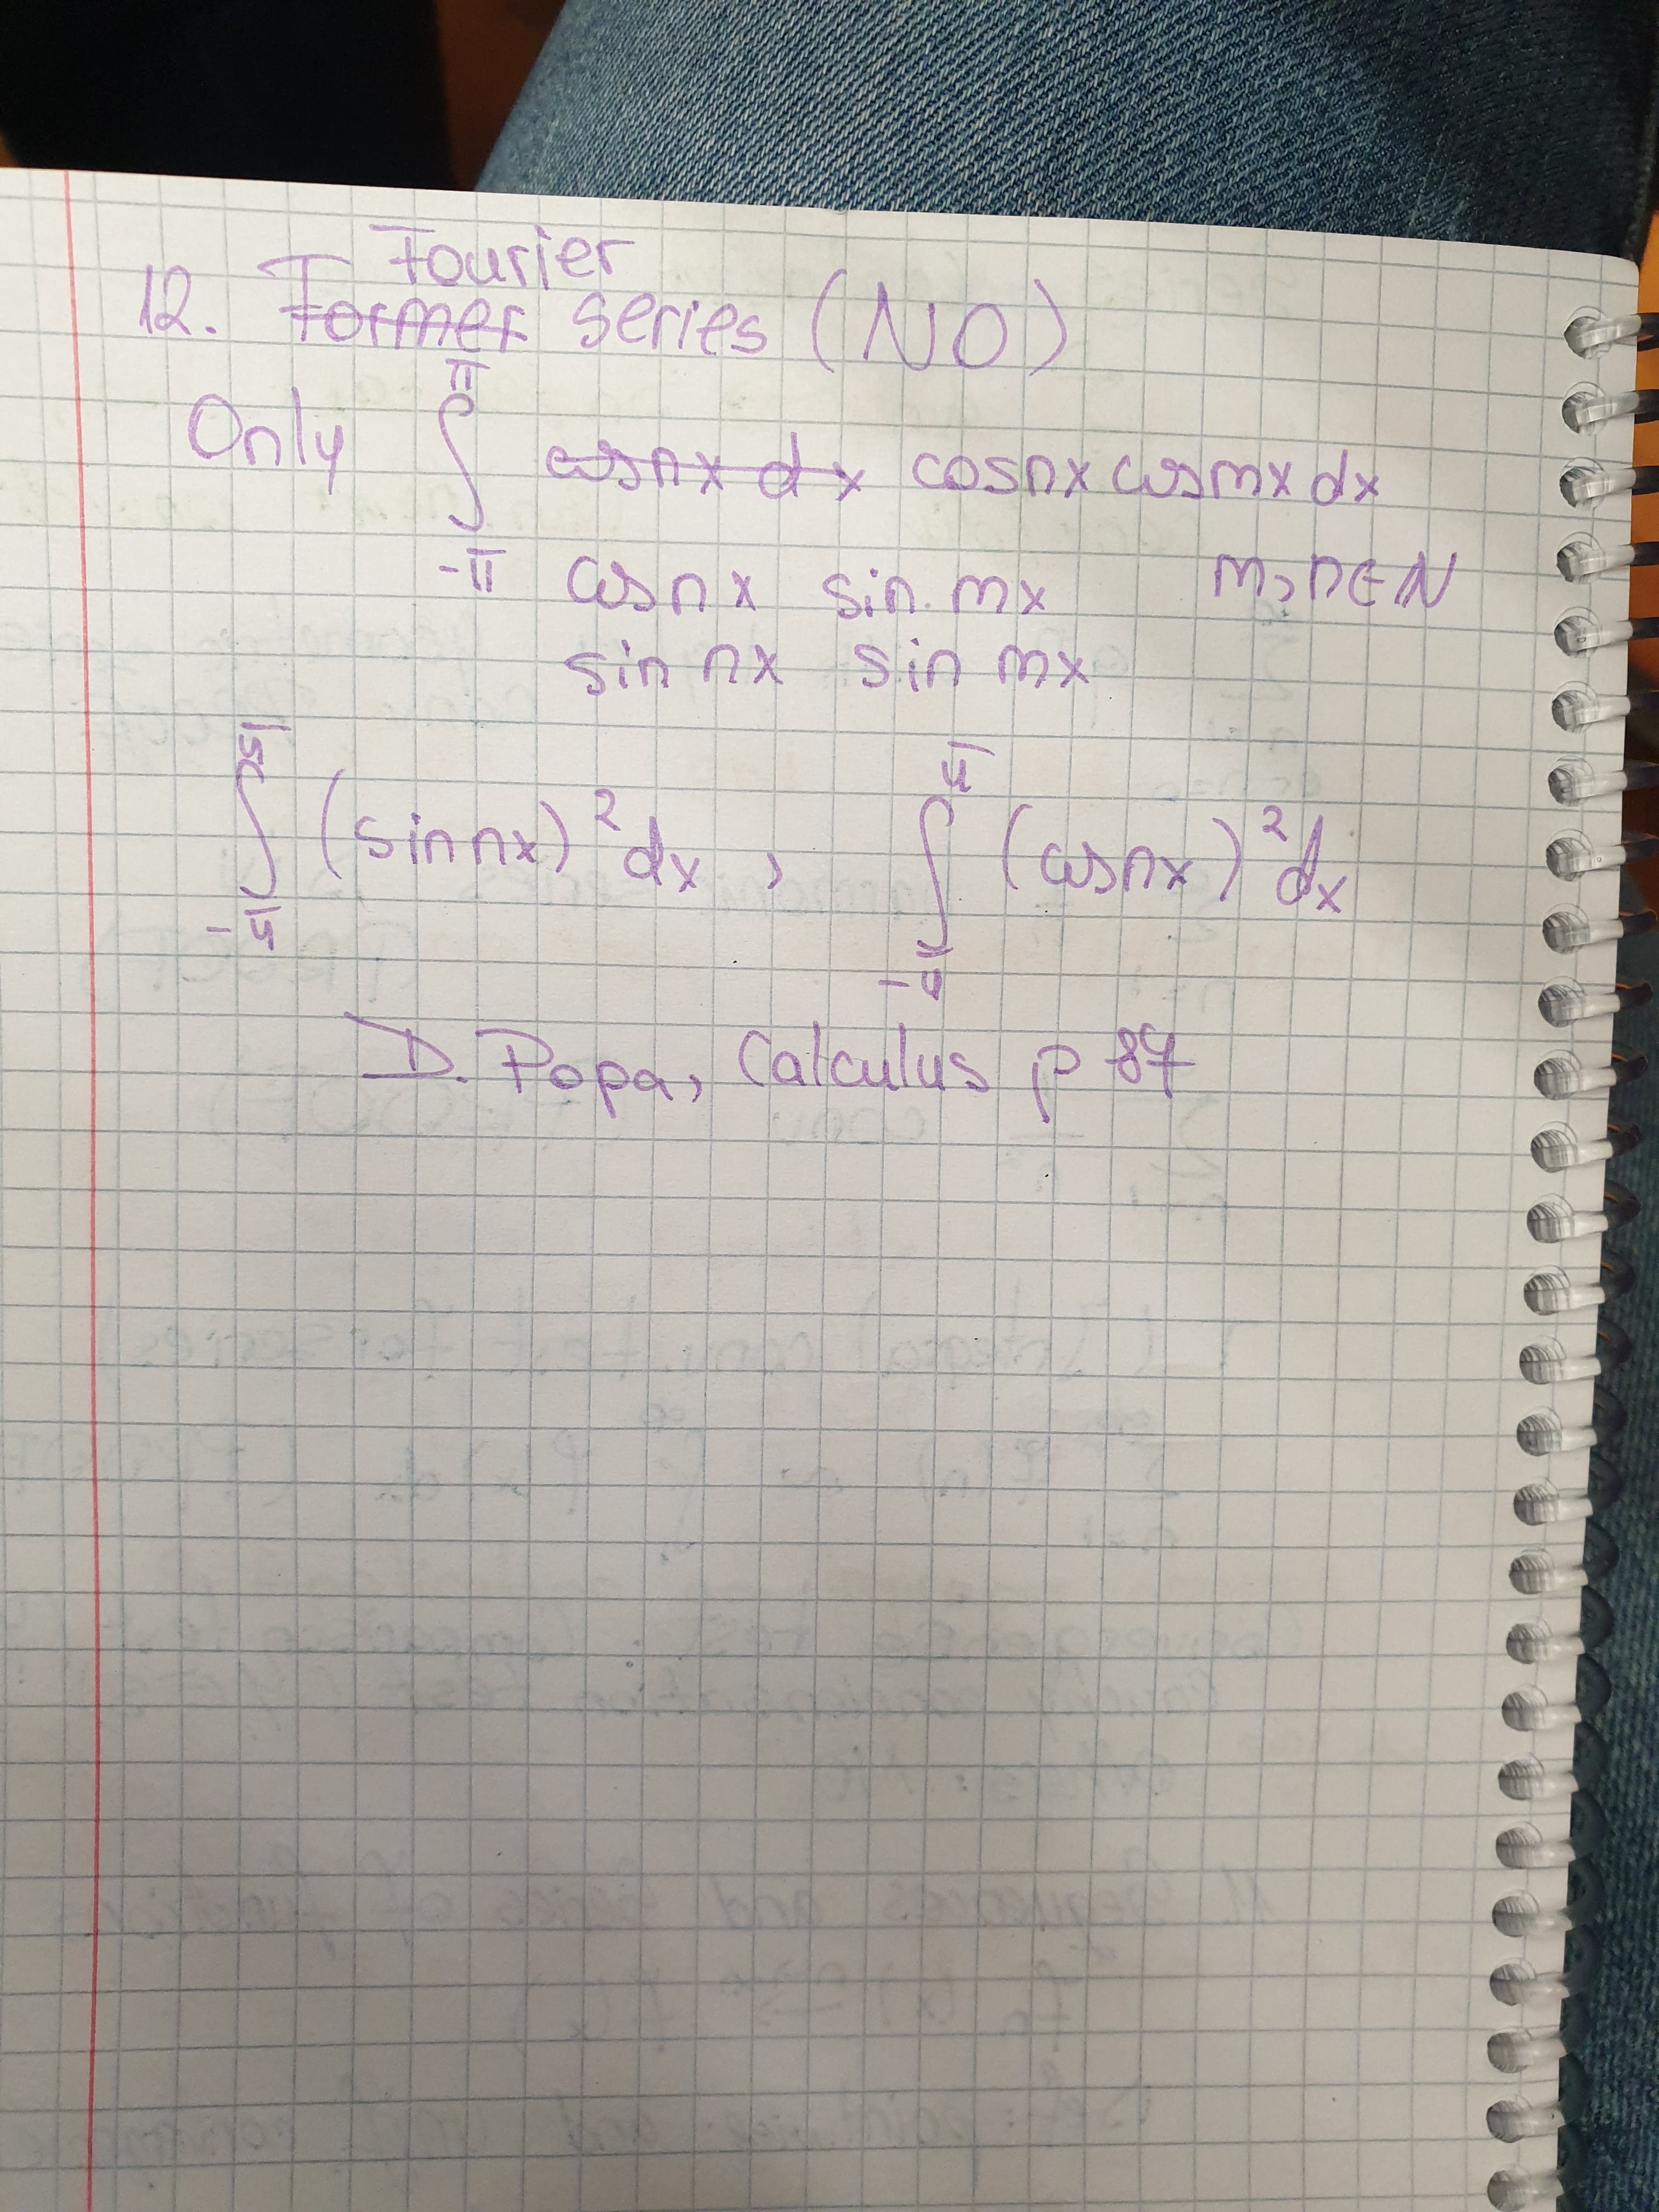 Fourier
12. Former series (NO)
Only ∫ π -π cosnx dx cosnx cosmx dx
cosnx sin mx m, n ∈ N
sin nx sin mx
∫ π -π (sin nx)² dx , ∫ π -π (cosnx)² dx
D. Popa, Calculus p 87